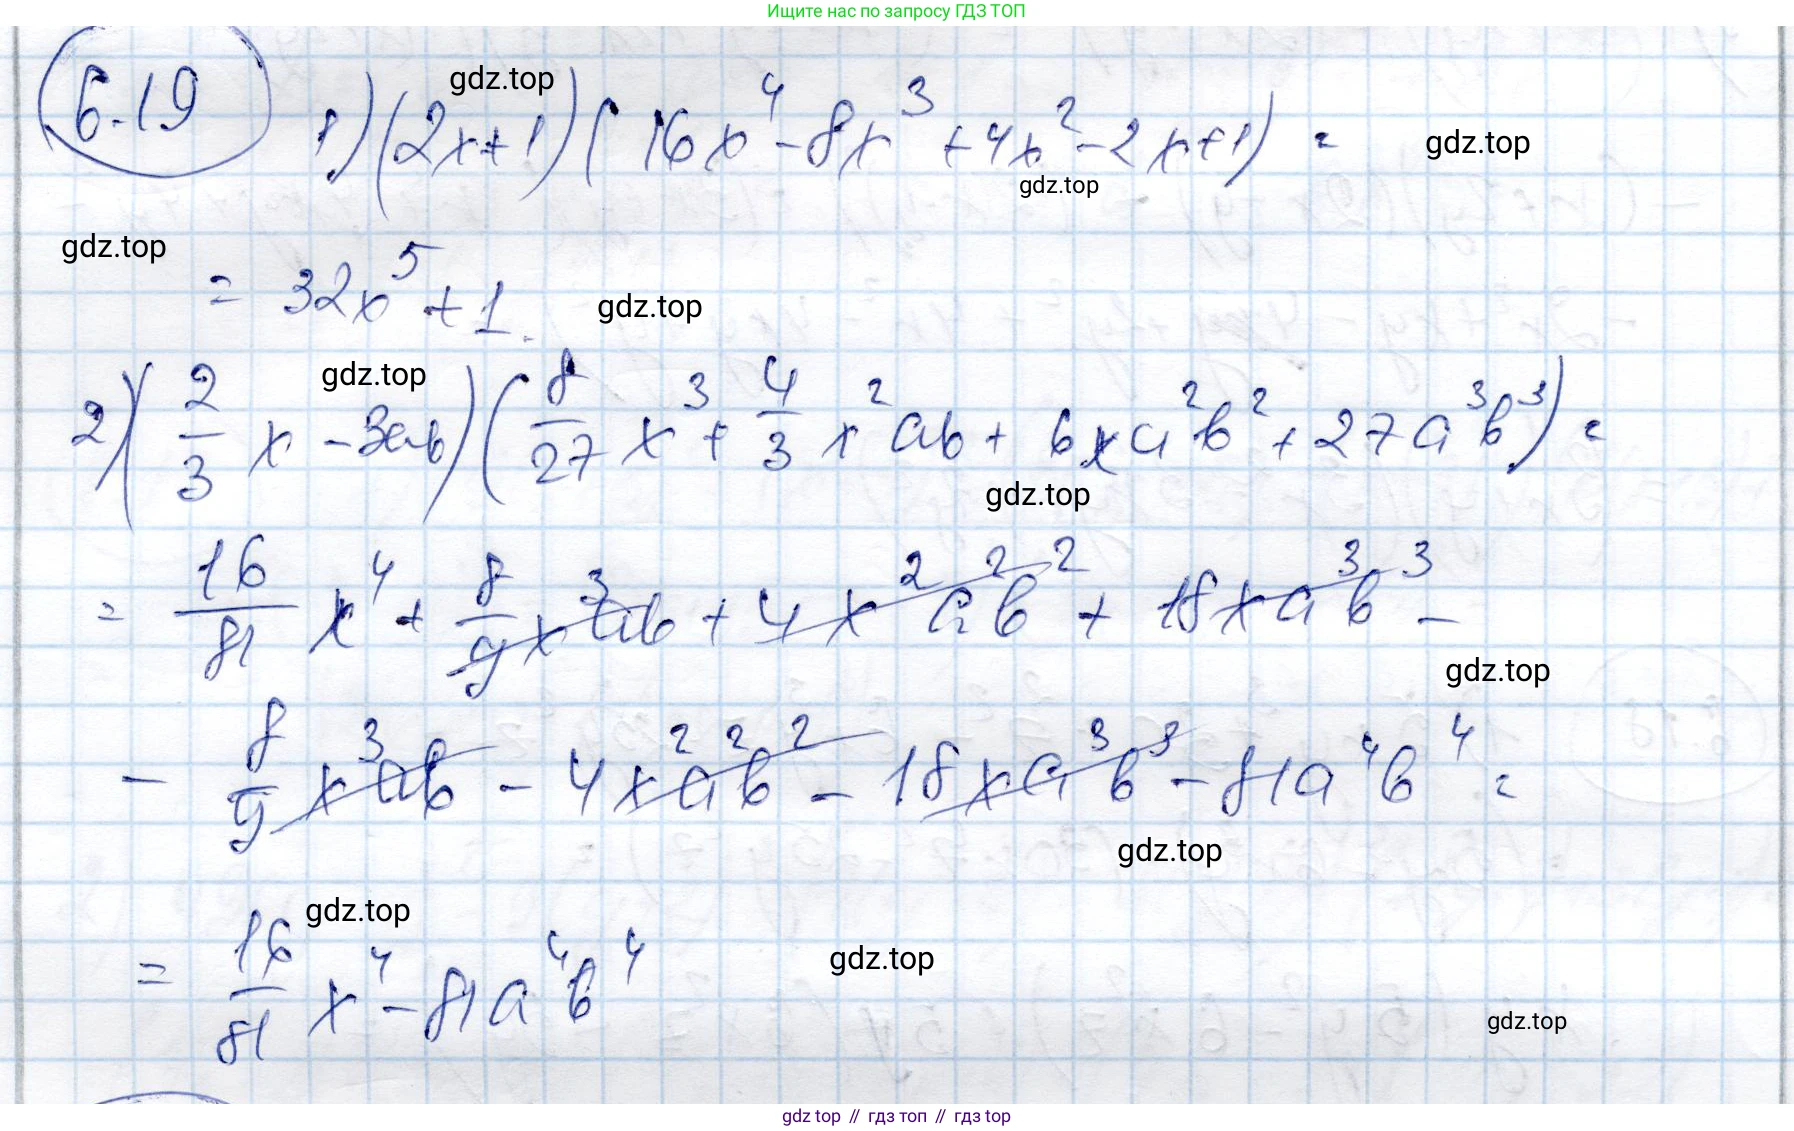 Ищите нас по запросу ГДЗ ТОП
6.19
gdz.top
1) (2x+1)(16x⁴-8x³+4x²-2x+1) =
gdz.top
gdz.top
gdz.top
= 32x⁵+1.
gdz.top
gdz.top
2) (2/3 x - 3ab)(8/27 x³ + 4/3 x²ab + 6xa²b² + 27a³b³) =
gdz.top
= 16/81 x⁴ + 8/9 x³ab + 4x²a²b² + 18xa³b³ -
gdz.top
- 8/9 x³ab - 4x²a²b² - 18xa³b³ - 81a⁴b⁴ =
gdz.top
gdz.top
= 16/81 x⁴ - 81a⁴b⁴
gdz.top
gdz.top
gdz top // гдз топ // гдз top